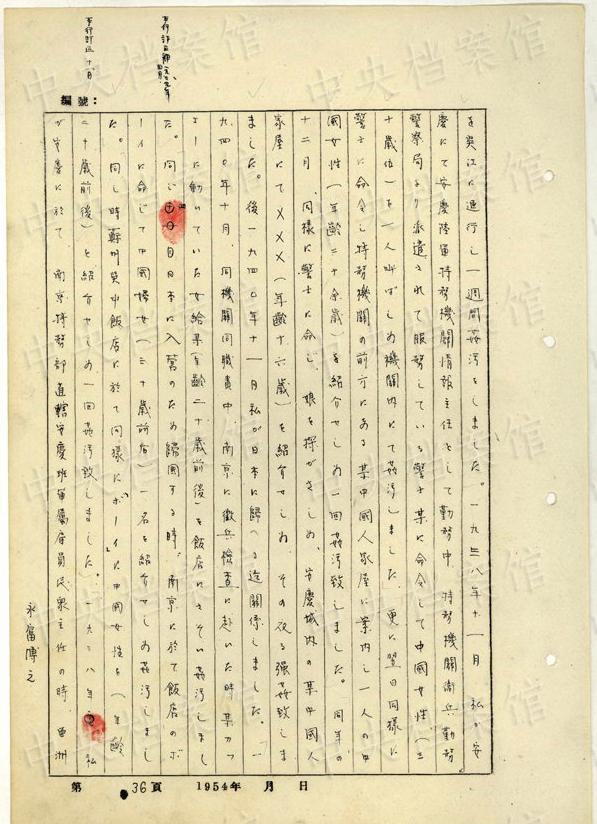 編號：
を吳江に連行し一週間姦污をしました。一九三八年十一月 私が安
慶にて安慶陸軍特務機關情報主任として勤務中 特務機關衛兵勤務
警察局より派遣されて服務している警士某に命令して中國女性（三
十歲位）を一人呼ばしめ機關内にて姦污しました、更に翌日同様に
警士に命令し特務機關の前方にある某中國人家屋に案内し一人の中
國女性（年齡三十余歲）を紹介せしめ一回姦污致しました。同年の
十二月、同様に警士に命じ、娘を探がさしめ、安慶城内の某中國人
家屋にて×××（年齡十六歲）を紹介せしめ、その夜る强姦致しま
ました。後一九四〇年十一月私が日本に歸へる迄關係しました。一
九四〇年十月、同機關同職責中、南京に徵兵檢查に赴いた時 某カフ
ェーに動いていた女給某（年齡二十歲前後）を飯店にさそい姦污しまし
た。同じ 月日本に入營のため歸國する時、南京に於て飯店のボ
ーイに命じて中國婦女（三十歲前后）一名を紹介せしめ姦污しまし
た。同じ時蘇州莫中飯店に於て同様に「ボーイ」に中國女性を（年齡
二十歲前後）を紹介せしめ一回姦污致しました。一九三八年 私
が安慶に於て 南京特務部直轄安慶班軍屬雇員民衆主任の時、亜洲
永富博之
第 36頁 1954年 月 日
中央档案馆